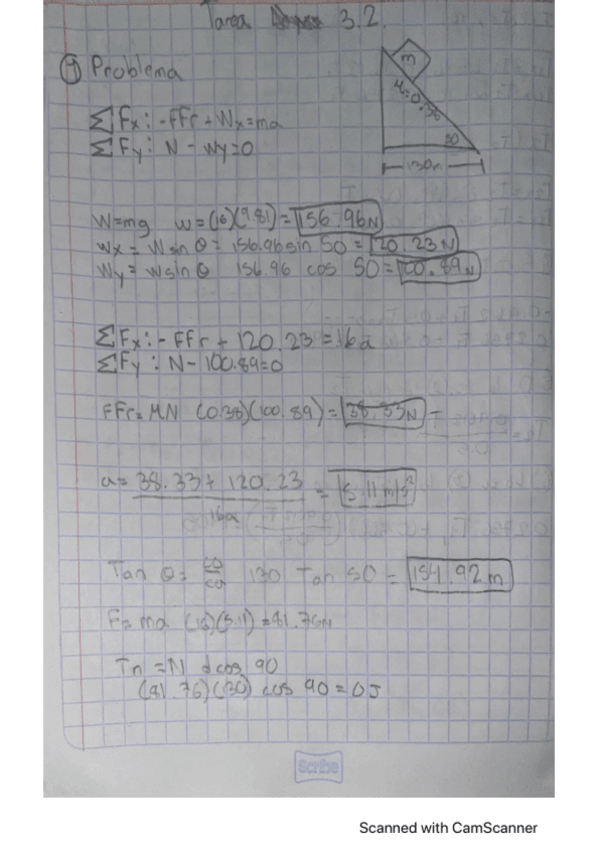 Tarea 3.2.
9 Problema
m
μ=0.38
50
130m
ΣFx: -FFr + Wx = ma
ΣFy: N - Wy = 0
W=mg w=(16)(9.81)= 156.96N
Wx = W sin θ = 156.96 sin 50 = 120.23N
Wy = W sin θ 156.96 cos 50 = 100.89N
ΣFx: - FFr + 120.23 = 16a
ΣFy: N - 100.89=0
FFr= MN (0.38)(100.89) = 38.33N -
a= 38.33 + 120.23 / 16a = 5.11 m/s²
Tan θ = 130 Tan 50 = 154.92 m
F= ma (16)(5.11) = 81.76N
Tn = N d cos 90
(81.76)(130) cos 90 = 0J
Scribe
Scanned with CamScanner